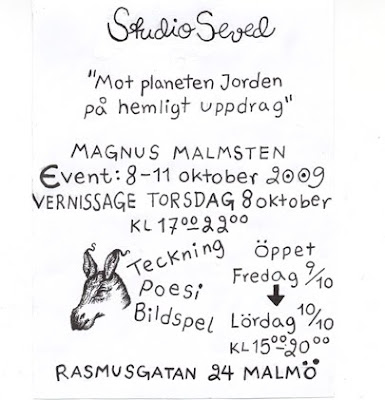 Studio Seved
"Mot planeten Jorden
på hemligt uppdrag"
MAGNUS MALMSTEN
Event: 8-11 oktober 2009
VERNISSAGE TORSDAG 8 oktober
KL 17⁰⁰22⁰⁰
Teckning
Poesi
Bildspel
Öppet
Fredag 9/10
Lördag 10/10
KL 15⁰⁰-20⁰⁰
RASMUSGATAN 24 MALMÖ